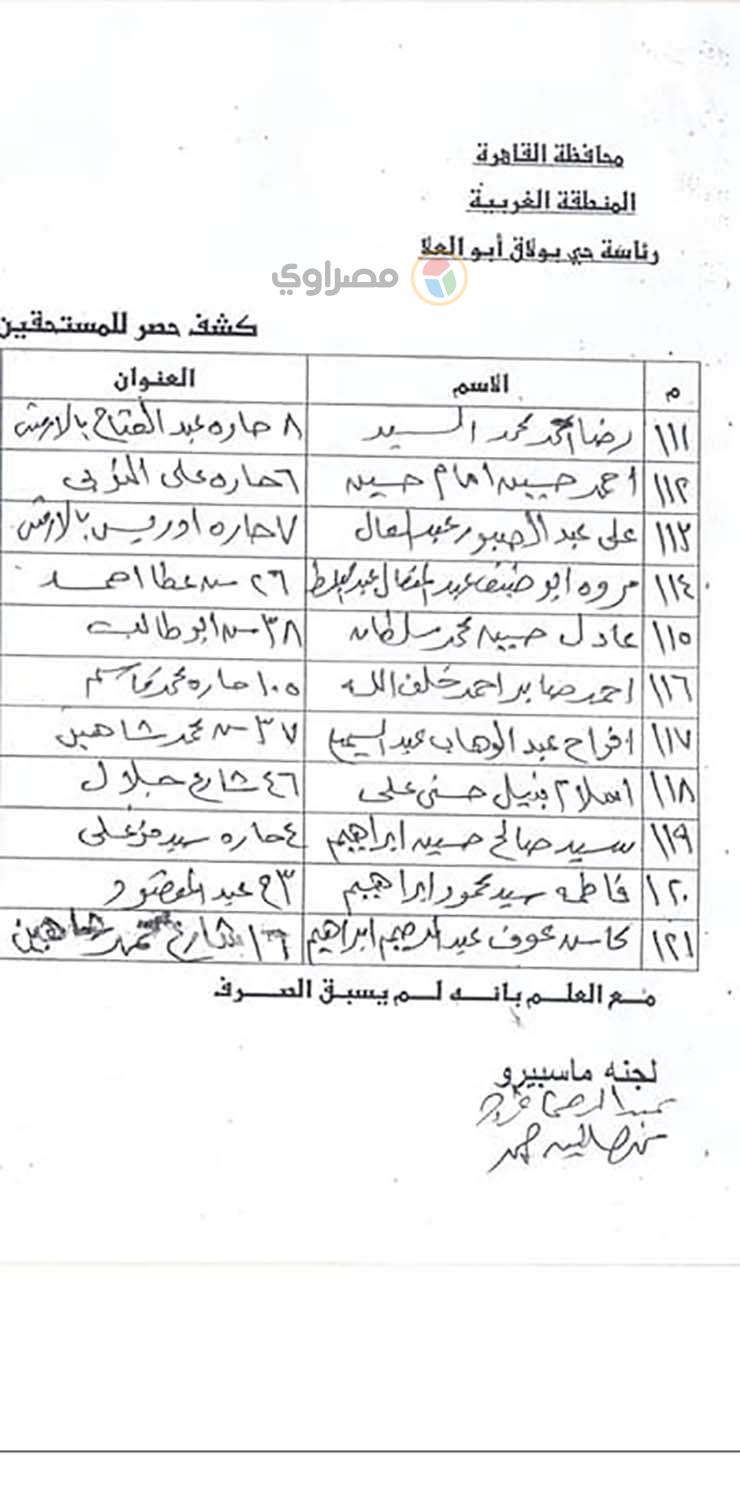 محافظة القاهرة
المنطقة الغربية
رئاسة حي بولاق أبو العلا
مصراوي
كشف حصر للمستحقين
م الاسم العنوان
١١١ رضا احمد محمد السيد ٨ حاره عبد الفتاح بالارمش
١١٢ احمد حسين امام حسين ٦ حاره على
١١٣ على عبد الصبور عبد العال ٧ حاره ادريس بالارمش
١١٤ مروه ابو ضيف عبد المتعال ٢٦ ش عطا احمد
١١٥ عادل حسين محمد سلطان ٣٨ ش ابو طالب
١١٦ احمد صابر احمد خلف الله ١٠٥ حاره محمد قاسم
١١٧ افراح عبد الوهاب عبد السميع ٣٧ ش محمد شاهين
١١٨ اسلام نبيل حسنى على ٤٦ شارع جلال
١١٩ سيد صالح حسين ابراهيم ٤ حاره سيد على
١٢٠ فاطمه سيد محمود ابراهيم ٣ ع عبد المقصود
١٢١ عوف عبد الرحيم ابراهيم ١٦ شارع محمد شاهين
مع العلم بانه لم يسبق الصرف
لجنه ماسبيرو